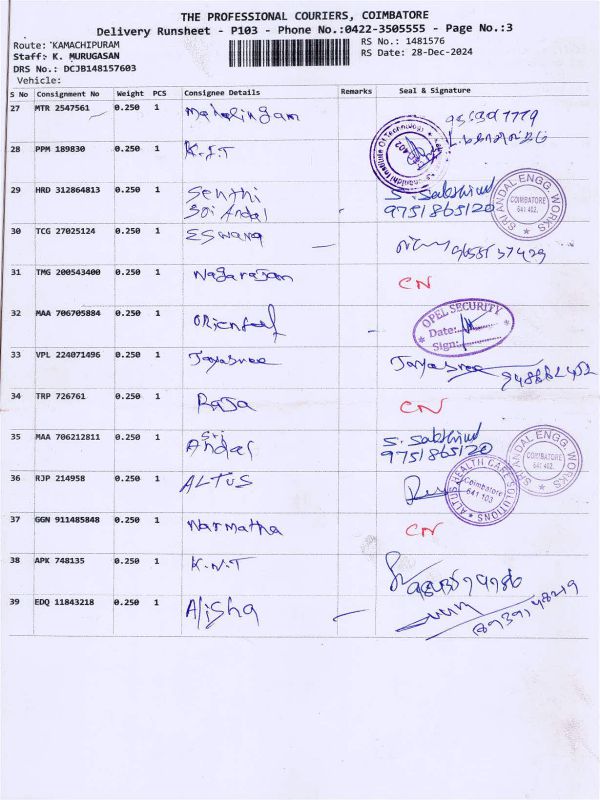 THE PROFESSIONAL COURIERS, COIMBATORE
Delivery Runsheet - P103 - Phone No.:0422-3505555 - Page No.:3
Route: KAMACHIPURAM
RS No.: 1481576
Staff: K. MURUGASAN
RS Date: 28-Dec-2024
DRS No.: DCJB148157603
Vehicle:
S No Consignment No Weight PCS Consignee Details Remarks Seal & Signature
27 MTR 2547561 0.250 1 Mahalingam
28 PPM 189830 0.250 1
Institute Of Technology
402
29 HRD 312864813 0.250 1 Senthi
Sri Andal
S. Sakthivel
9751865120
SRI ANDAL ENGG. WORKS
COIMBATORE
641 402.
30 TCG 27025124 0.250 1 Eswara
31 TMG 200543400 0.250 1 Nagarajan CN
32 MAA 706705884 0.250 1 Oriental
OPEL SECURITY
Date:
Sign:
33 VPL 224071496 0.250 1 Jayasree Jayasree
34 TRP 726761 0.250 1 Raja CN
35 MAA 706212811 0.250 1 Sri
Andal
S. Sakthivel
9751865120
SRI ANDAL ENGG. WORKS
COIMBATORE
641 402.
36 RJP 214958 0.250 1 ALTUS
ALTUS HEALTH CARE SOLUTIONS
Coimbatore
641 103
37 GGN 911485848 0.250 1 Narmatha CN
38 APK 748135 0.250 1 K.N.T
39 EDQ 11843218 0.250 1 Alisha